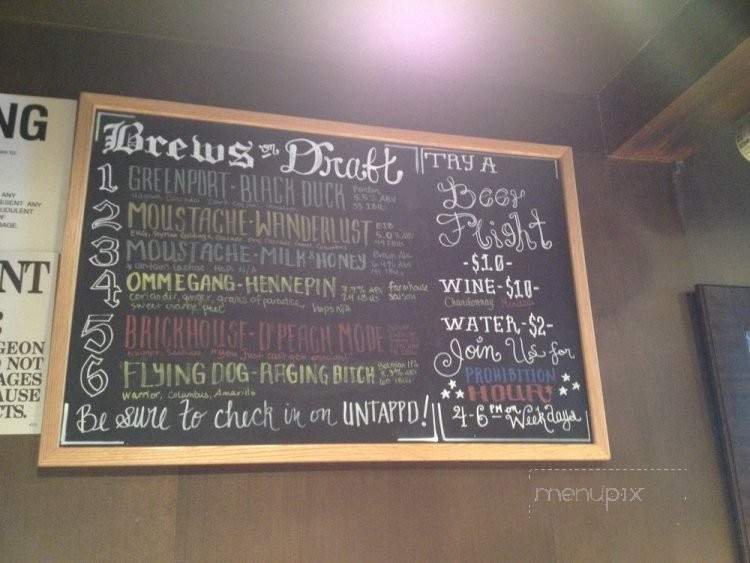 NG
ANY
ESENT ANY
UDULENT
OF
RAGE.
NT
:
GEON
O NOT
AGES
AUSE
CTS.
Brews on Draft
1 GREENPORT - BLACK DUCK Porter
5.5% ABV
2 MOUSTACHE - WANDERLUST ESB
5.0% ABV
3 MOUSTACHE - MILK & HONEY Brown Ale
contains lactose Hops N/A
4 OMMEGANG - HENNEPIN 7.7% ABV farmhouse
24 IBUs saison
coriander, ginger, grains of paradise, hops N/A
sweet orange peel
5 BRICKHOUSE - D'PEACH MODE
"you just can't get enough"
6 FLYING DOG - RAGING BITCH Belgian IPA
8.3% ABV
60 IBUs
Warrior, Columbus, Amarillo
Be sure to check in on UNTAPPD!
TRY A
Beer
Flight
-$10-
WINE-$10-
Chardonnay
WATER-$2-
Join Us for
PROHIBITION
HOUR
4-6 PM on Weekdays
menupix